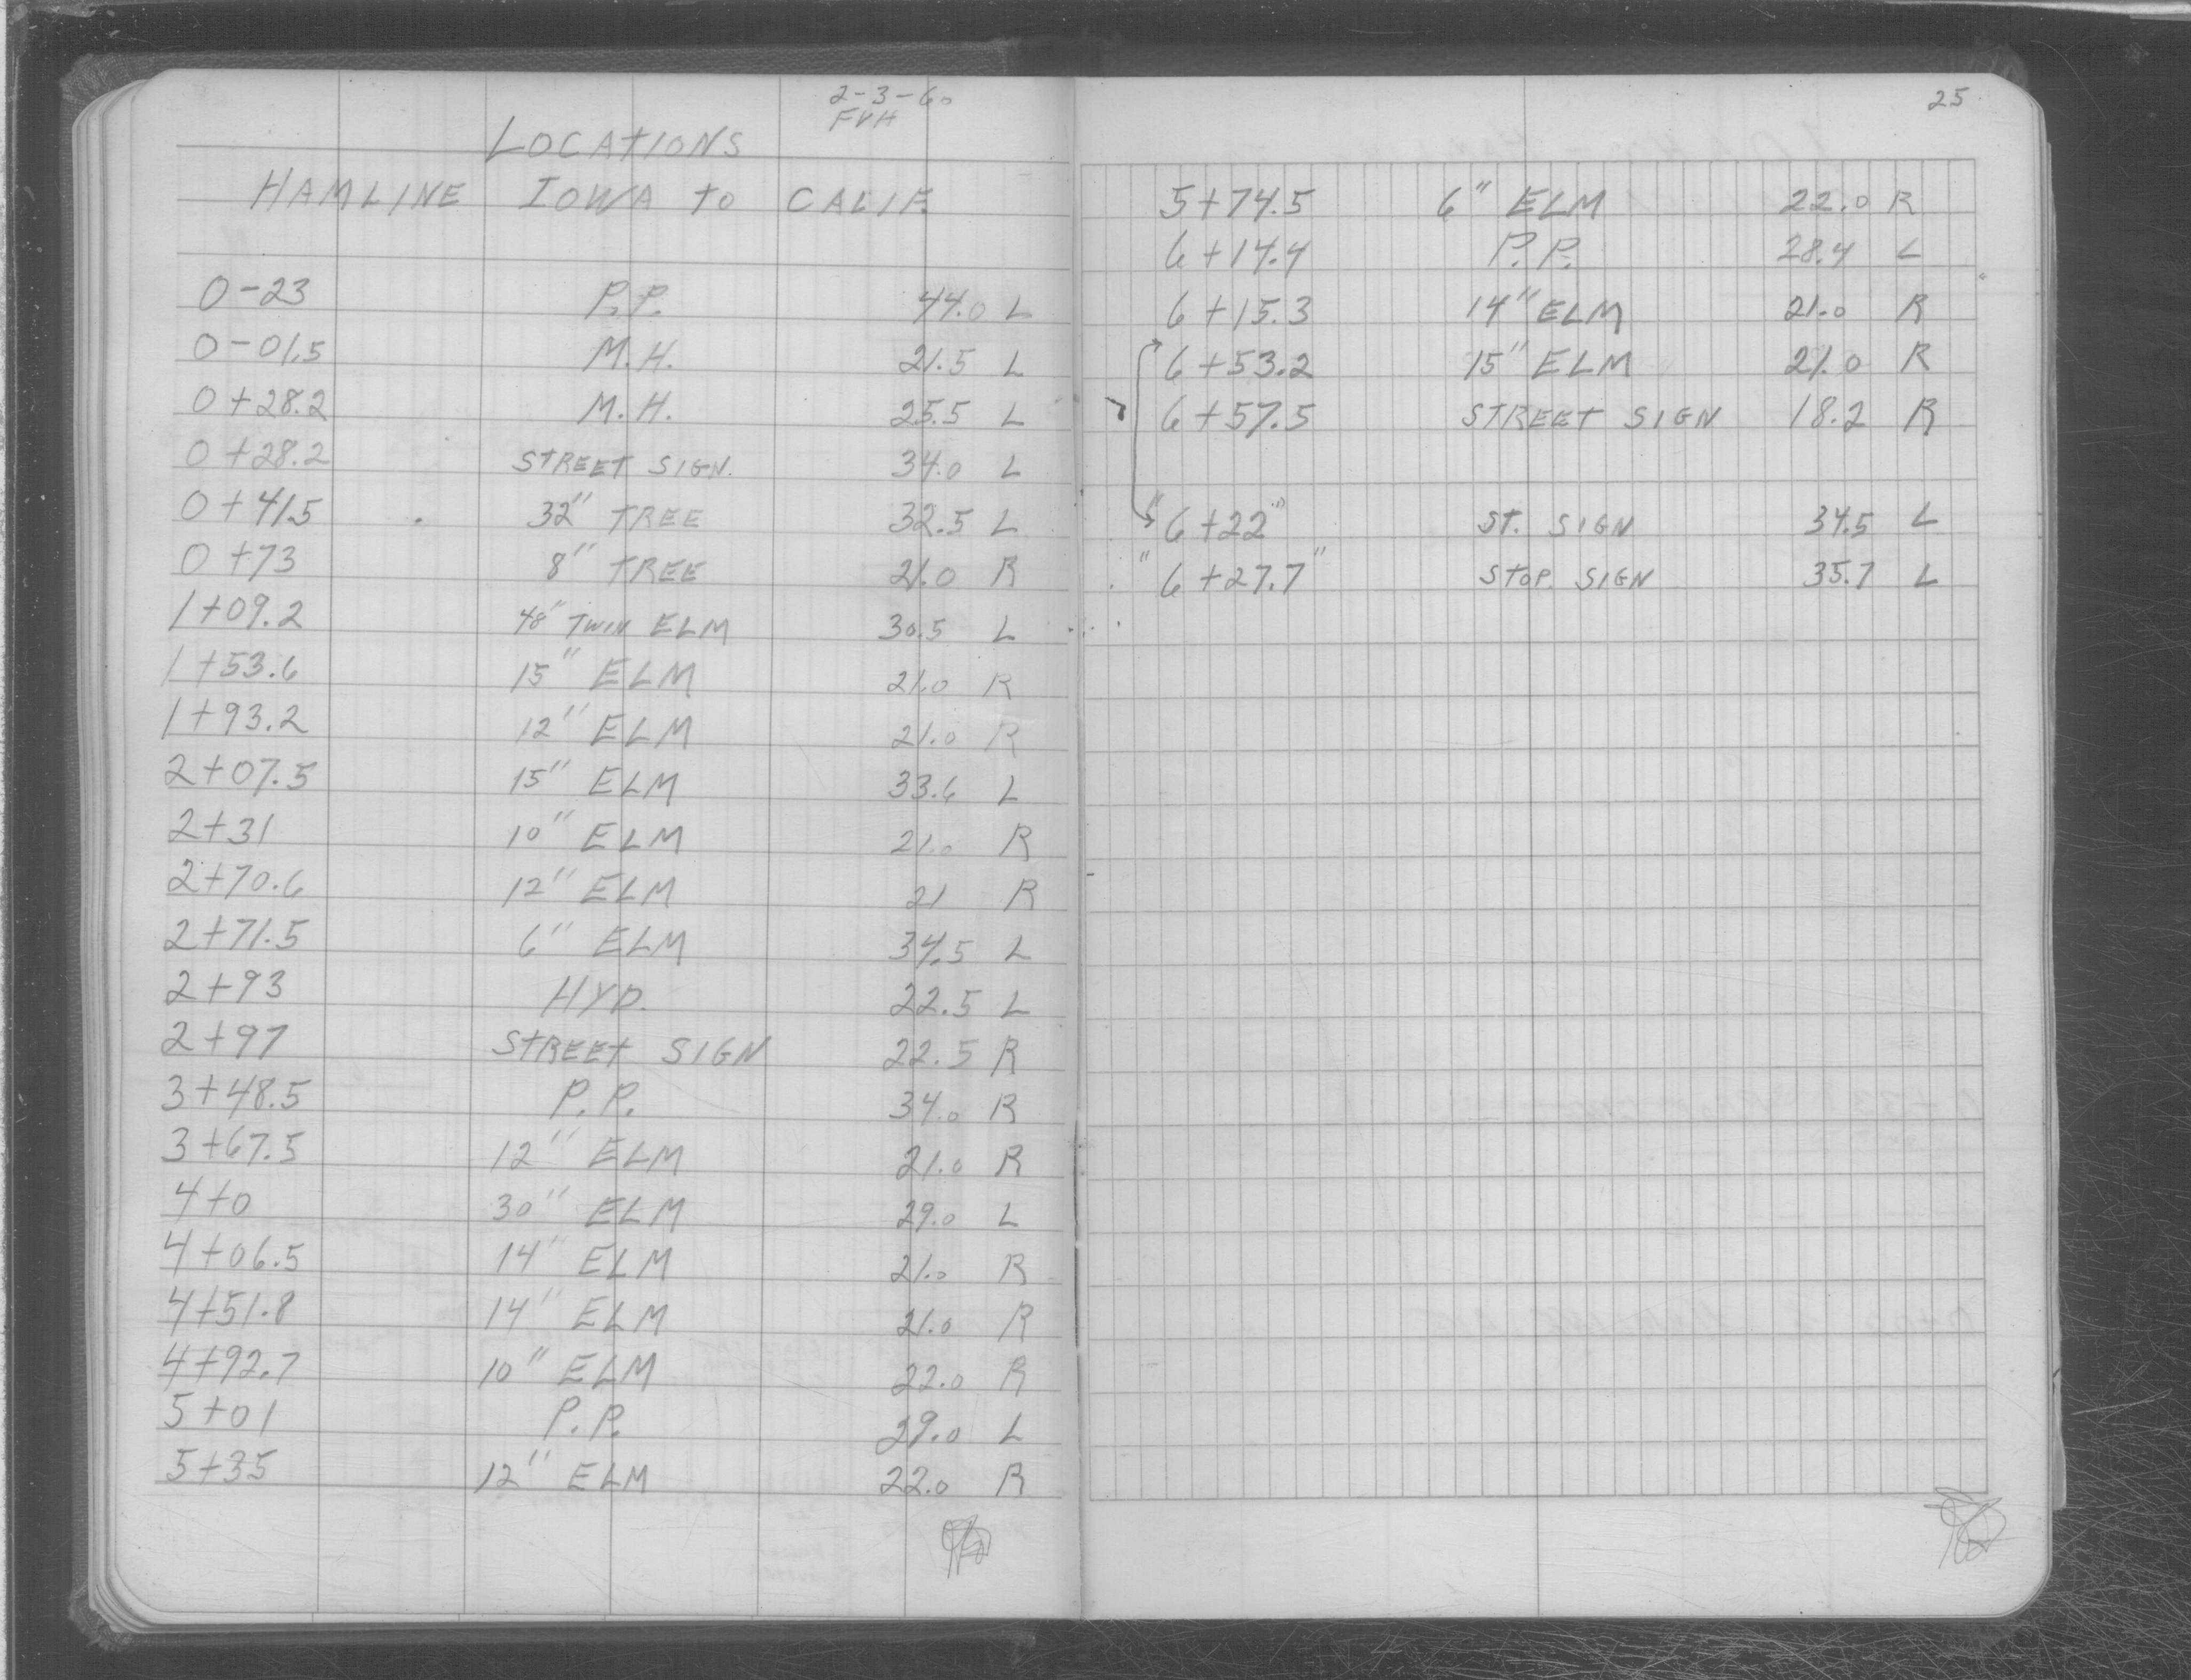 2-3-60
FVH
LOCATIONS
HAMLINE IOWA to CALIF.
0-23 P.P. 44.0 L
0-01.5 M.H. 21.5 L
0+28.2 M.H. 25.5 L
0+28.2 STREET SIGN. 34.0 L
0+41.5 32" TREE 32.5 L
0+73 8" TREE 21.0 R
1+09.2 48" TWIN ELM 30.5 L
1+53.6 15" ELM 21.0 R
1+93.2 12" ELM 21.0 R
2+07.5 15" ELM 33.6 L
2+31 10" ELM 21.0 R
2+70.6 12" ELM 21 R
2+71.5 6" ELM 34.5 L
2+93 HYD. 22.5 L
2+97 STREET SIGN 22.5 R
3+48.5 P.P. 34.0 R
3+67.5 12" ELM 21.0 R
4+0 30" ELM 29.0 L
4+06.5 14" ELM 21.0 R
4+51.8 14" ELM 21.0 R
4+92.7 10" ELM 22.0 R
5+01 P.P. 29.0 L
5+35 12" ELM 22.0 R
25
5+74.5 6" ELM 22.0 R
6+14.4 P.P. 28.4 L
6+15.3 14" ELM 21.0 R
6+53.2 15" ELM 21.0 R
6+57.5 STREET SIGN 18.2 R
"6+22" ST. SIGN 34.5 L
"6+27.7" STOP SIGN 35.7 L